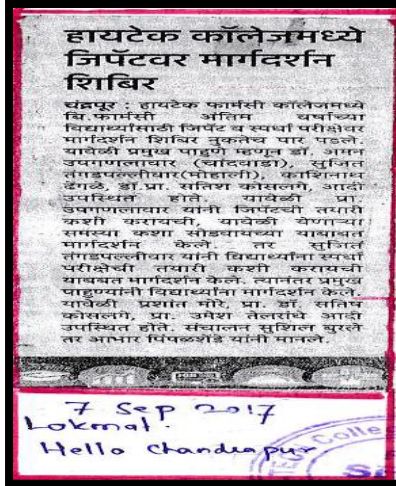 हायटेक कॉलेजमध्ये
जिपॅटवर मार्गदर्शन
शिबिर
चंद्रपूर : हायटेक फार्मसी कॉलेजमध्ये
बि.फार्मसी अंतिम वर्षाच्या
विद्यार्थ्यांसाठी जिपॅट व स्पर्धा परीक्षेवर
मार्गदर्शन शिबिर नुकतेच पार पडले.
यावेळी प्रमुख पाहुणे म्हणून डॉ. अमन
उपगणलावार (चांदवाडा), सुजित
तंगडपल्लीवार(मोहाली), काशिनाथ
ढेंगळे, डॉ.प्रा. सतिश कोसलगे, आदी
उपस्थित होते. यावेळी प्रा.
उपगणलावार यांनी जिपॅटची तयारी
कशी करायची, यावेळी येणाऱ्या
समस्या कशा सोडवायच्या याबाबत
मार्गदर्शन केले. तर सुजित
तंगडपल्लीवार यांनी विद्यार्थ्यांना स्पर्धा
परीक्षेची तयारी कशी करायची
याबाबत मार्गदर्शन केले. त्यानंतर प्रमुख
पाहुण्यांनी विद्यार्थ्यांना मार्गदर्शन केले.
यावेळी प्रशांत मोरे, प्रा. डॉ. सतिष
कोसलगे, प्रा. उमेश तेलरांधे आदी
उपस्थित होते. संचालन सुशिल बुरले
तर आभार पिंपळशेंडे यांनी मानले.
7 Sep 2017
Lokmat.
Hello Chandrapur